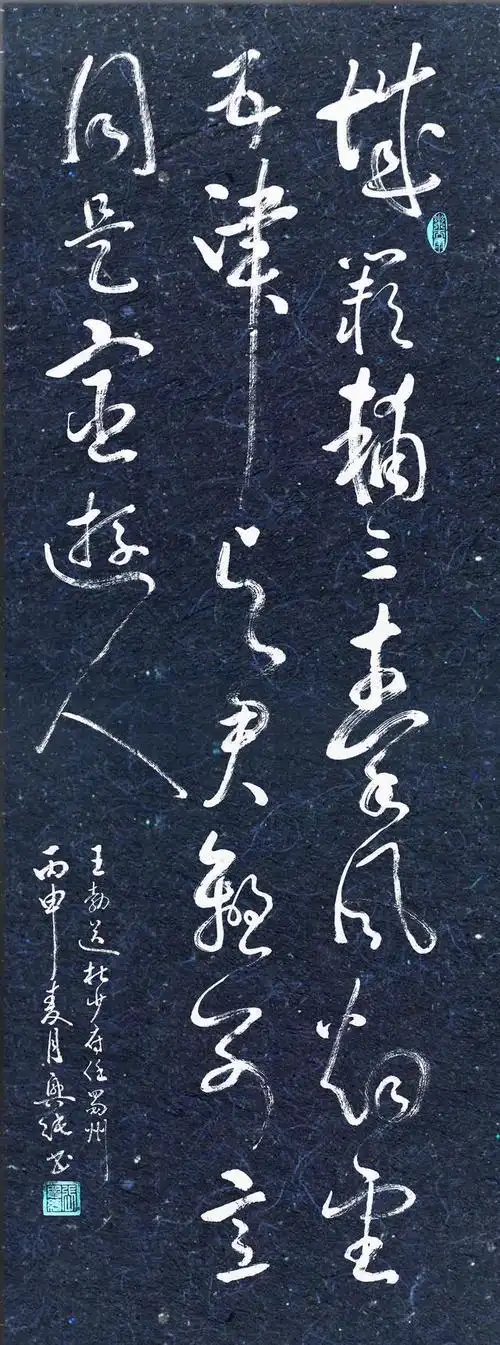 城闕輔三秦風烟望
五津与君離别意
同是宦遊人
王勃送杜少府任蜀州
丙申夏月興书